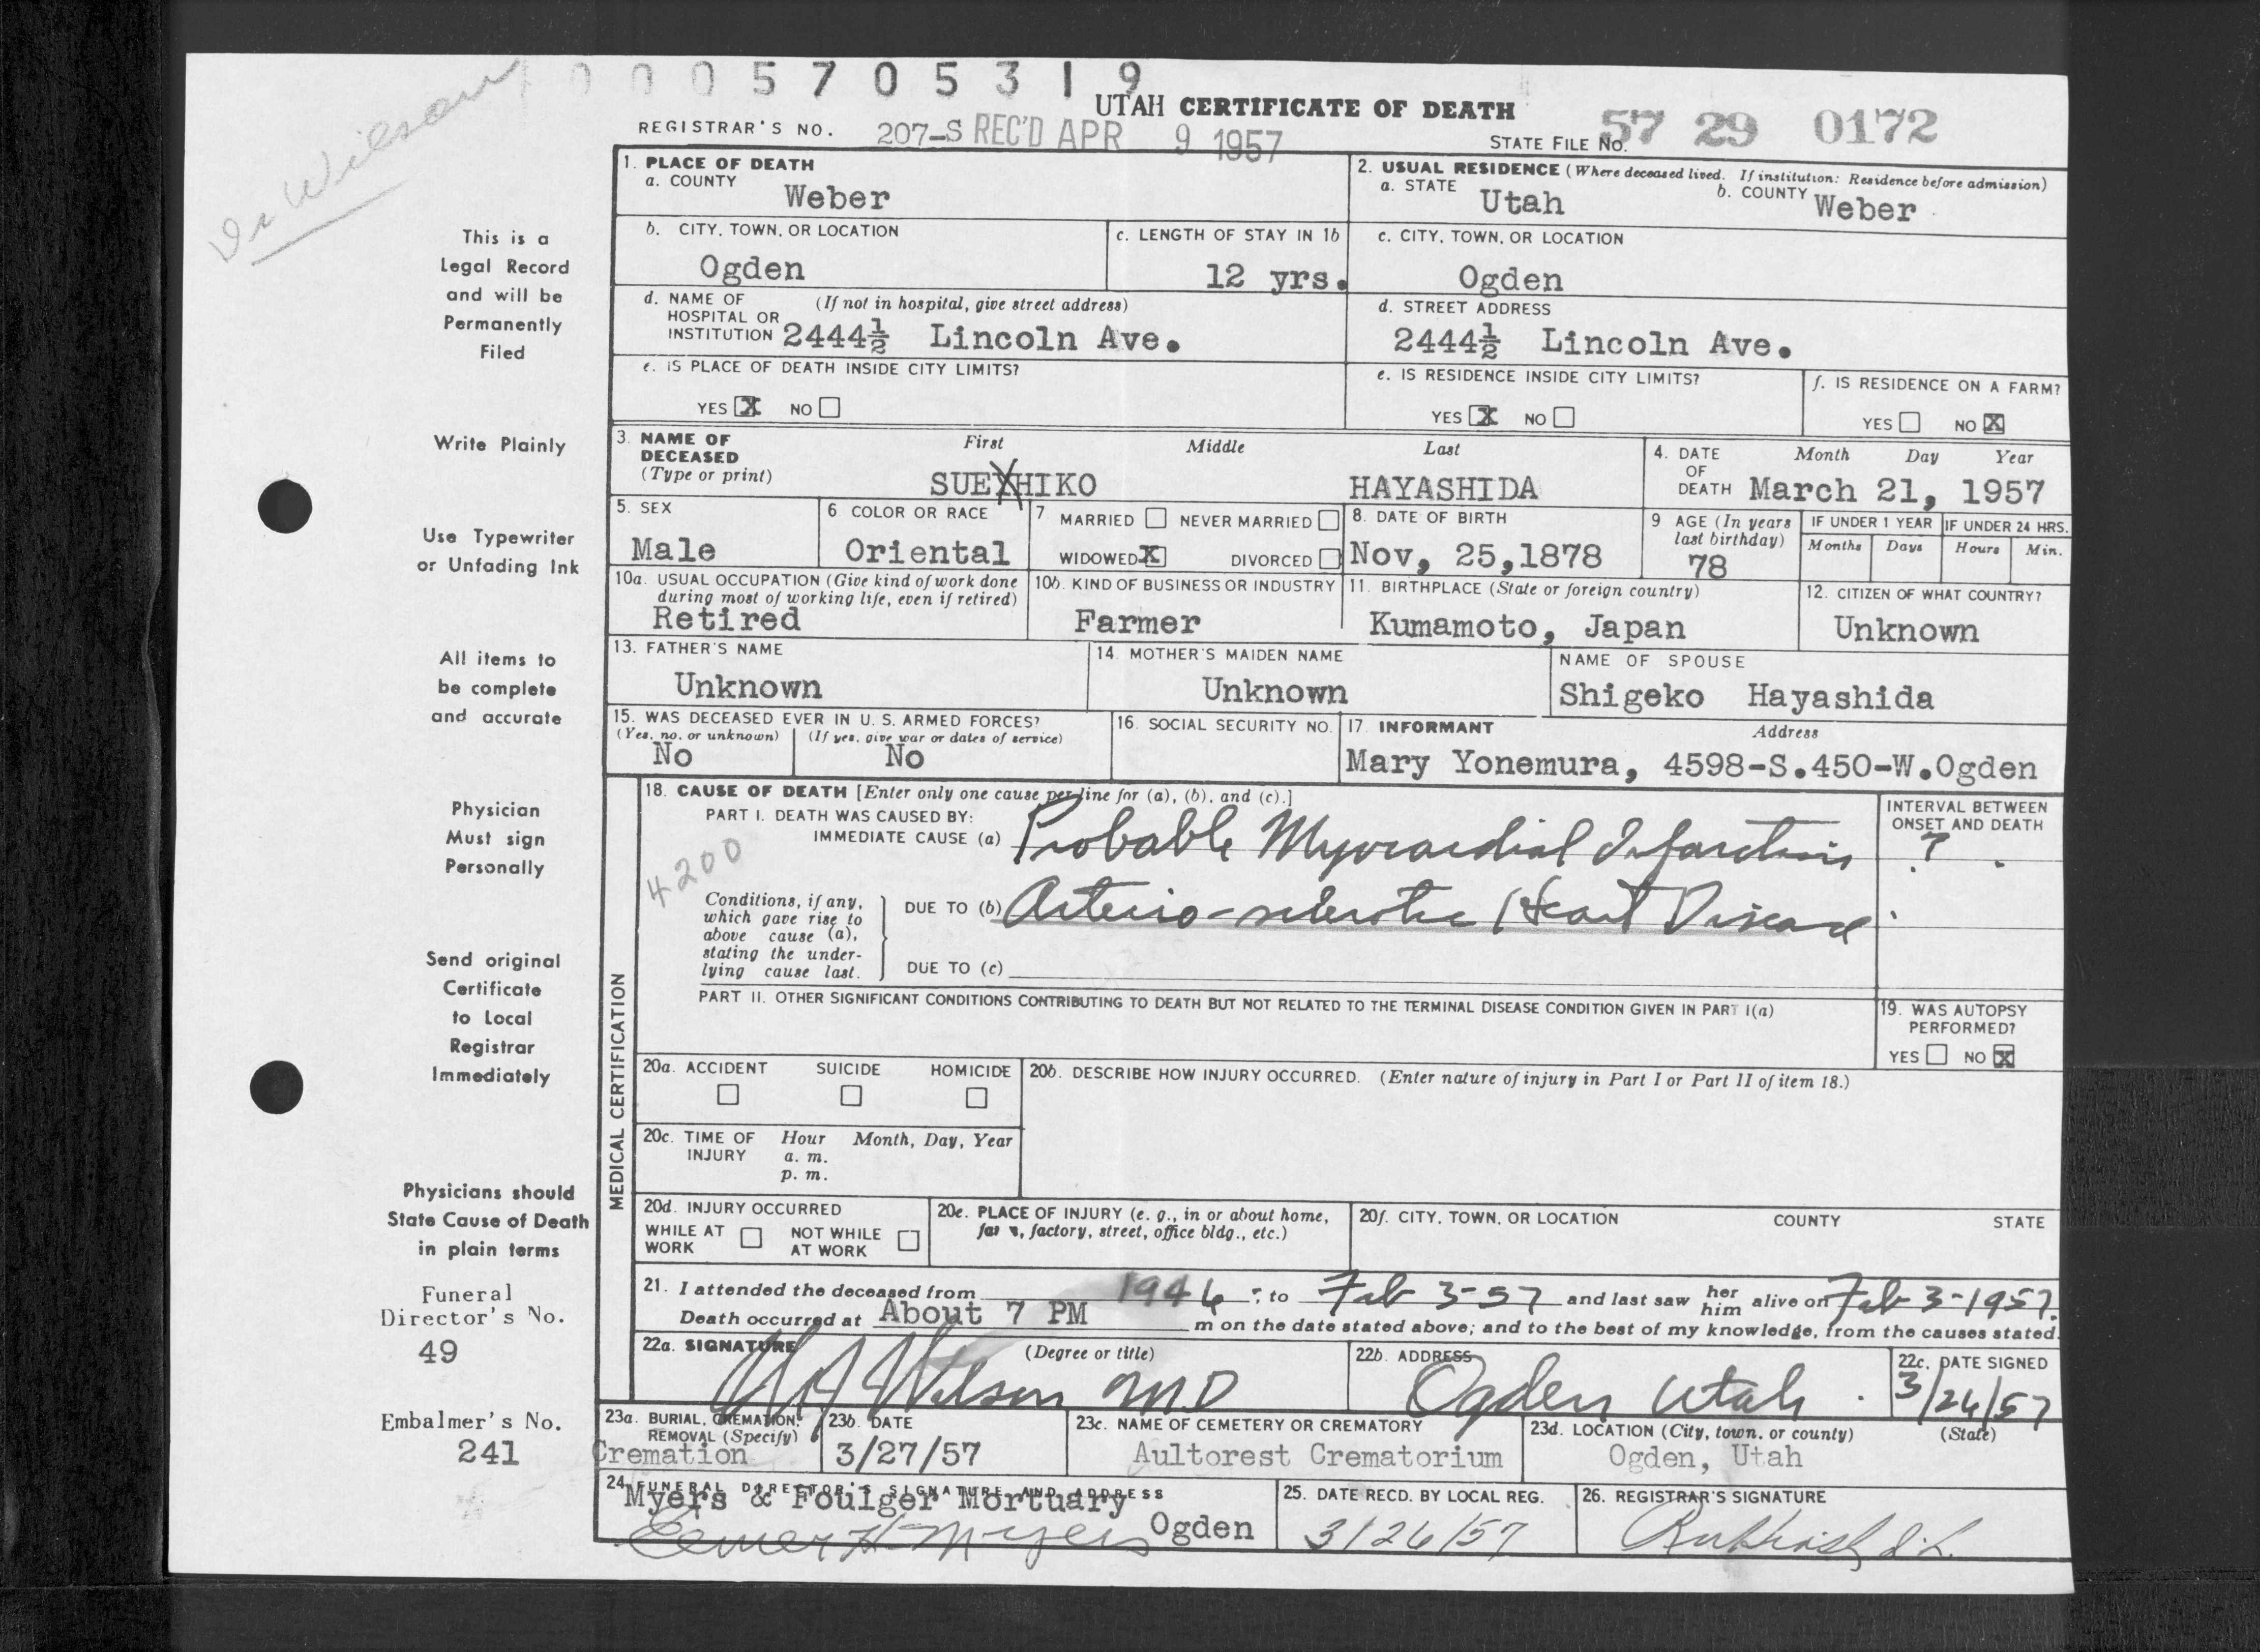 Dr Wilson
0005705319
UTAH CERTIFICATE OF DEATH
REGISTRAR'S NO. 207-S REC'D APR 9 1957
STATE FILE NO. 57 29 0172
This is a
Legal Record
and will be
Permanently
Filed
Write Plainly
Use Typewriter
or Unfading Ink
All items to
be complete
and accurate
Physician
Must sign
Personally
Send original
Certificate
to Local
Registrar
Immediately
Physicians should
State Cause of Death
in plain terms
Funeral
Director's No.
49
Embalmer's No.
241
1. PLACE OF DEATH
a. COUNTY
Weber
2. USUAL RESIDENCE (Where deceased lived. If institution: Residence before admission)
a. STATE Utah b. COUNTY Weber
b. CITY, TOWN, OR LOCATION
Ogden
c. LENGTH OF STAY IN 1b
12 yrs.
c. CITY, TOWN, OR LOCATION
Ogden
d. NAME OF (If not in hospital, give street address)
HOSPITAL OR
INSTITUTION 2444½ Lincoln Ave.
d. STREET ADDRESS
2444½ Lincoln Ave.
e. IS PLACE OF DEATH INSIDE CITY LIMITS?
YES X NO
e. IS RESIDENCE INSIDE CITY LIMITS?
YES X NO
f. IS RESIDENCE ON A FARM?
YES NO X
3. NAME OF DECEASED
(Type or print)
First Middle Last
SUEHIKO HAYASHIDA
4. DATE OF DEATH
Month Day Year
March 21, 1957
5. SEX
Male
6 COLOR OR RACE
Oriental
7 MARRIED NEVER MARRIED
WIDOWED X DIVORCED
8. DATE OF BIRTH
Nov, 25,1878
9 AGE (In years
last birthday)
78
IF UNDER 1 YEAR
Months Days
IF UNDER 24 HRS.
Hours Min.
10a. USUAL OCCUPATION (Give kind of work done
during most of working life, even if retired)
Retired
10b. KIND OF BUSINESS OR INDUSTRY
Farmer
11. BIRTHPLACE (State or foreign country)
Kumamoto, Japan
12. CITIZEN OF WHAT COUNTRY?
Unknown
13. FATHER'S NAME
Unknown
14. MOTHER'S MAIDEN NAME
Unknown
NAME OF SPOUSE
Shigeko Hayashida
15. WAS DECEASED EVER IN U. S. ARMED FORCES?
(Yes, no, or unknown) (If yes, give war or dates of service)
No No
16. SOCIAL SECURITY NO.
17. INFORMANT Address
Mary Yonemura, 4598-S.450-W.Ogden
MEDICAL CERTIFICATION
18. CAUSE OF DEATH [Enter only one cause per line for (a), (b), and (c).]
PART I. DEATH WAS CAUSED BY:
IMMEDIATE CAUSE (a) Probable Myocardial Infarction
INTERVAL BETWEEN
ONSET AND DEATH
?
4200
Conditions, if any,
which gave rise to
above cause (a),
stating the under-
lying cause last.
DUE TO (b) Arterio-sclerotic Heart Disease
DUE TO (c)
PART II. OTHER SIGNIFICANT CONDITIONS CONTRIBUTING TO DEATH BUT NOT RELATED TO THE TERMINAL DISEASE CONDITION GIVEN IN PART I(a)
19. WAS AUTOPSY
PERFORMED?
YES NO X
20a. ACCIDENT SUICIDE HOMICIDE
20b. DESCRIBE HOW INJURY OCCURRED. (Enter nature of injury in Part I or Part II of item 18.)
20c. TIME OF INJURY
Hour Month, Day, Year
a. m.
p. m.
20d. INJURY OCCURRED
WHILE AT WORK
NOT WHILE AT WORK
20e. PLACE OF INJURY (e. g., in or about home,
farm, factory, street, office bldg., etc.)
20f. CITY, TOWN, OR LOCATION COUNTY STATE
21. I attended the deceased from 1946, to Feb 3-57 and last saw her him alive on Feb 3-1957.
Death occurred at About 7 PM m on the date stated above; and to the best of my knowledge, from the causes stated.
22a. SIGNATURE (Degree or title)
Wilson M.D
22b. ADDRESS
Ogden Utah
22c. DATE SIGNED
3/26/57
23a. BURIAL, CREMATION,
REMOVAL (Specify)
Cremation
23b. DATE
3/27/57
23c. NAME OF CEMETERY OR CREMATORY
Aultorest Crematorium
23d. LOCATION (City, town, or county) (State)
Ogden, Utah
24 FUNERAL DIRECTOR'S SIGNATURE AND ADDRESS
Myers & Foulger Mortuary
Ogden
Myers
25. DATE RECD. BY LOCAL REG.
3/26/57
26. REGISTRAR'S SIGNATURE